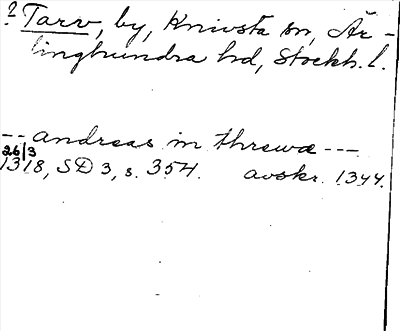 ? Tarv, by, Knivsta sn, Är-
linghundra hd, Stockh. l.
-- andreas in threwæ ---
26/3
1318, SD 3, s. 354. avskr. 1344.